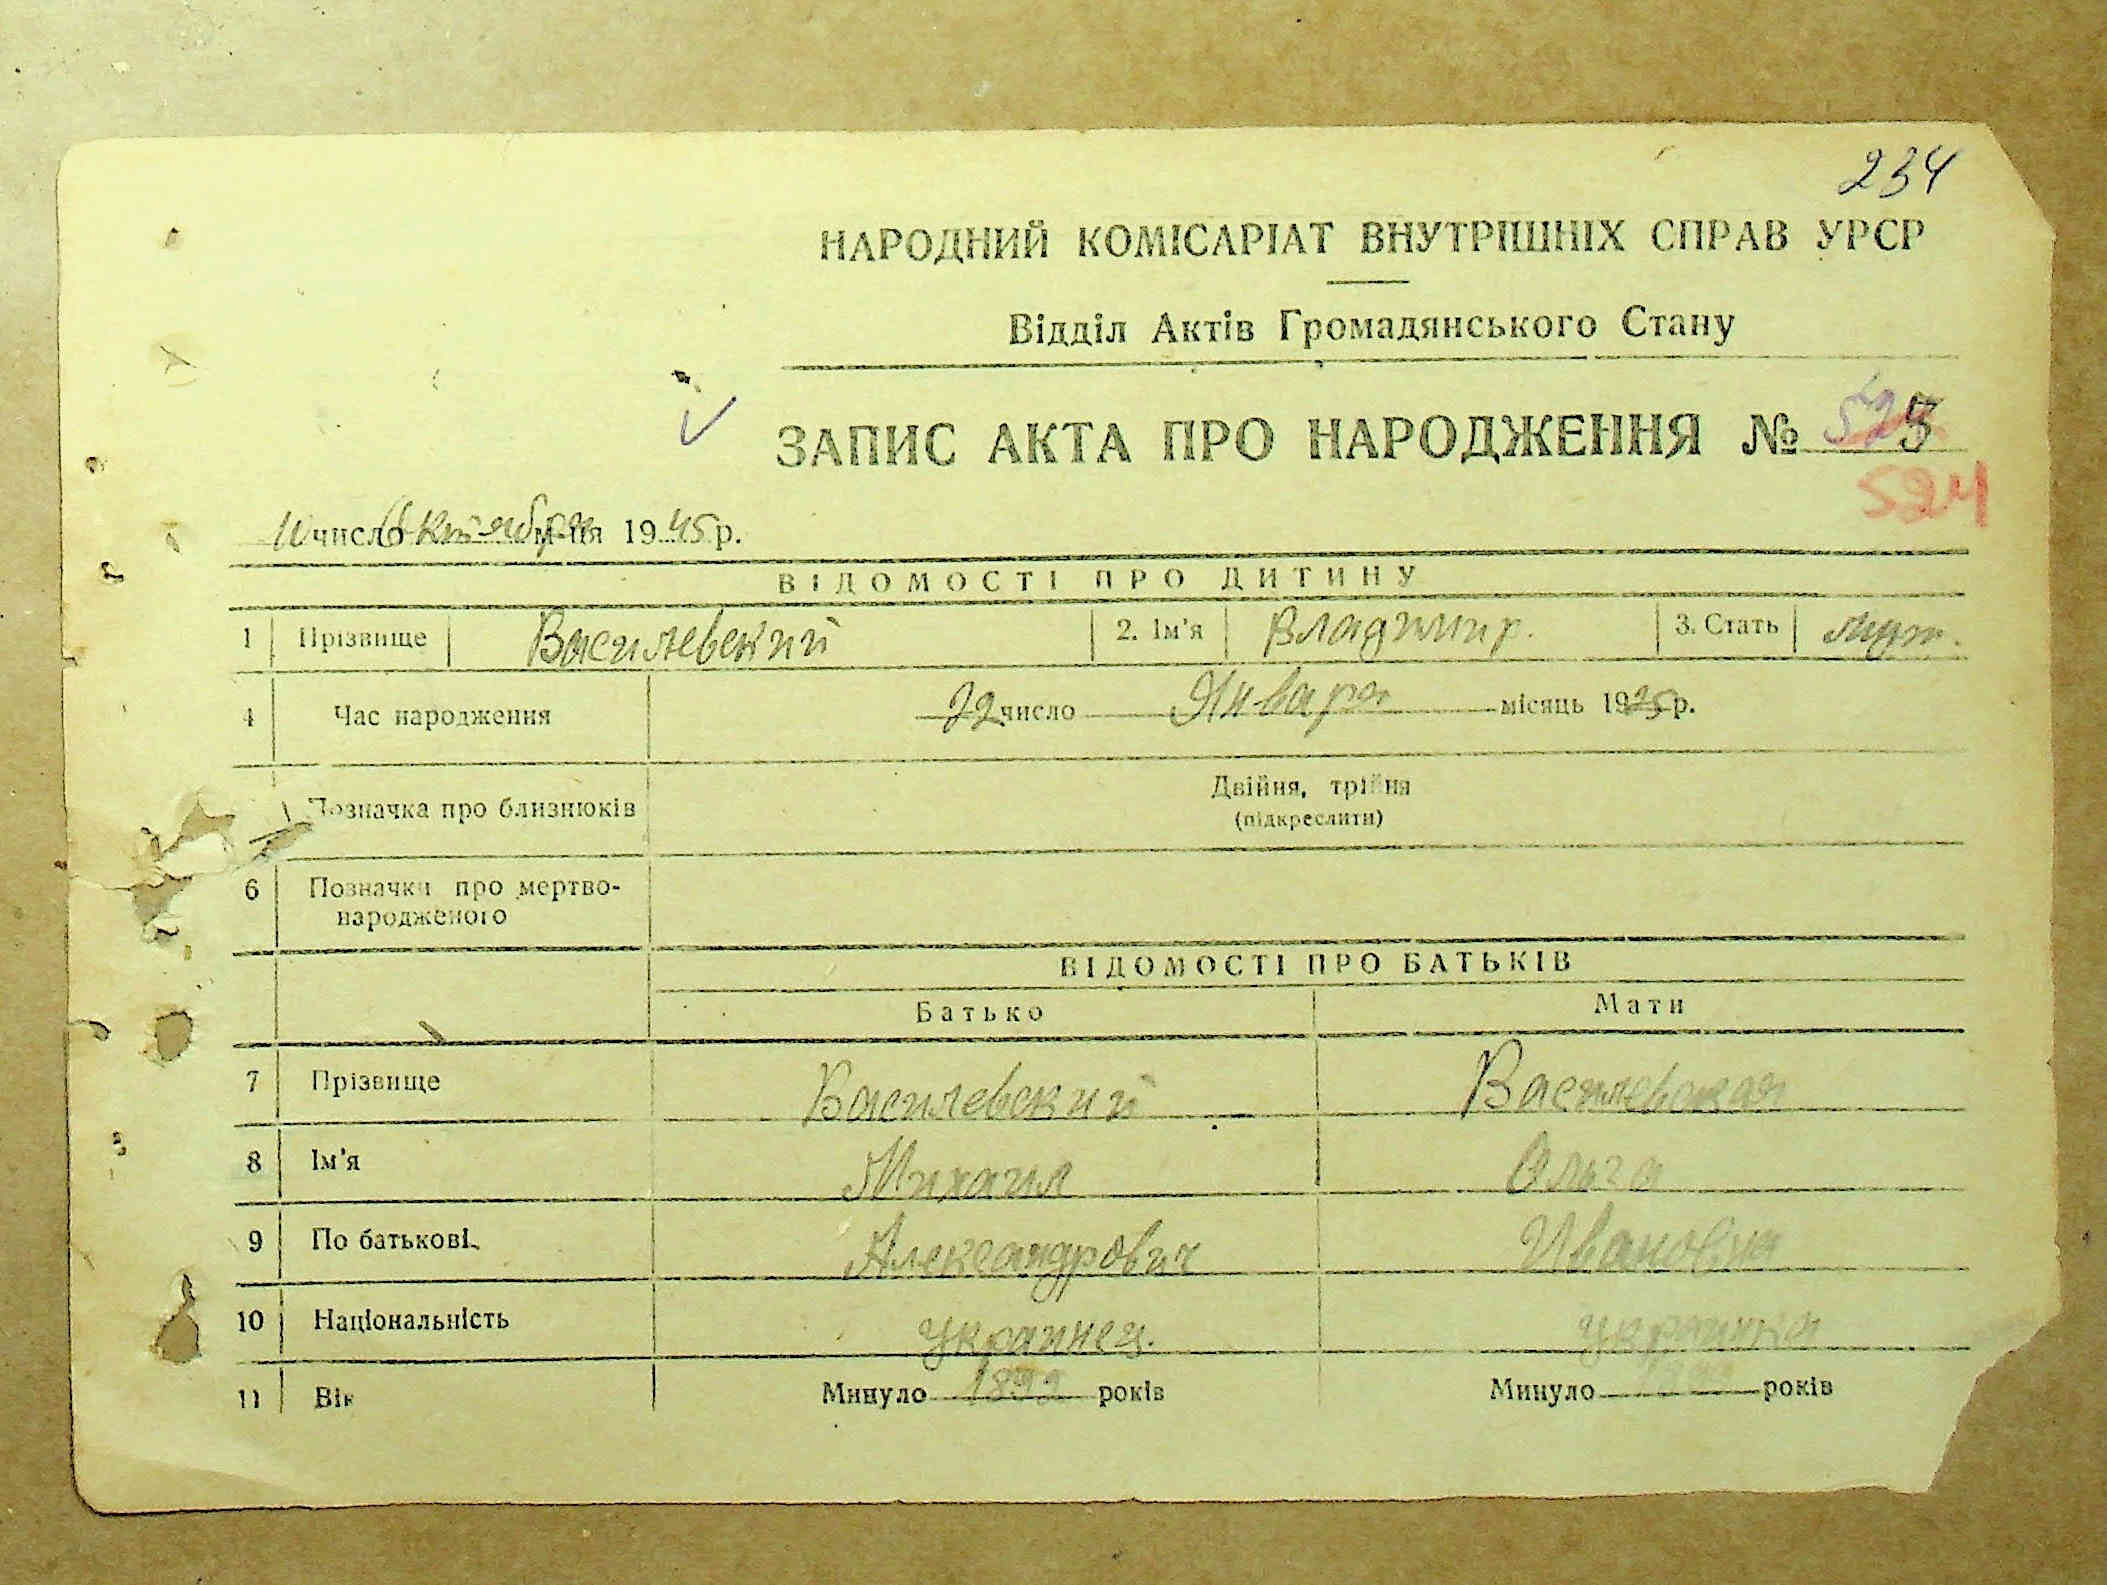 234
НАРОДНИЙ КОМІСАРІАТ ВНУТРІШНІХ СПРАВ УРСР
Відділ Актів Громадянського Стану
ЗАПИС АКТА ПРО НАРОДЖЕННЯ №
524
10 число Октября м-ця 1945 р.
ВІДОМОСТІ ПРО ДИТИНУ
1 Прізвище Василевский 2. Ім'я Владимир. 3. Стать муж.
4 Час народження 22 число Января місяць 1925 р.
Позначка про близнюків Двійня, трійня
(підкреслити)
6 Позначки про мертво-
народженого
ВІДОМОСТІ ПРО БАТЬКІВ
Батько Мати
7 Прізвище Василевский Василевская
8 Ім'я Михаил Ольга
9 По батькові Александрович Ивановна
10 Національність украинец. украинка
11 Вік Минуло 1892 років Минуло років